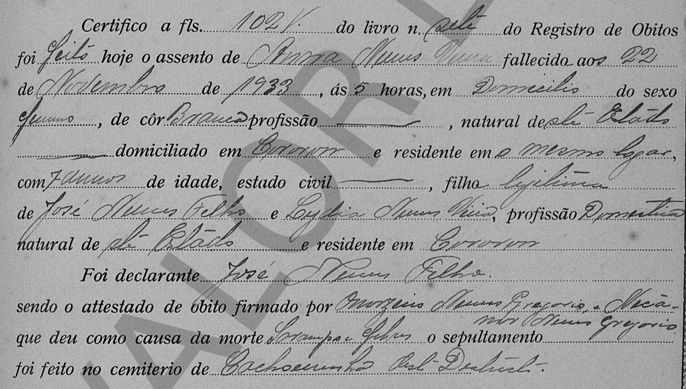 Certifico a fls. 102 V. do livro n. sete do Registro de Obitos
foi feito hoje o assento de Anna Nunes Vieira fallecido aos 22
de Novembro de 1933, ás 5 horas, em Domicilio do sexo
de côr Branca profissão natural deste Estado
domiciliado em e residente em o mesmo lugar,
com 7 annos de idade, estado civil , filha legitima
de José Nunes Filho e Lydia Nunes Vieira, profissão Domestica
natural de ste Estado e residente em
Foi declarante José Nunes Filho.
sendo o attestado de obito firmado por Nunes Gregorio, e
Nunes Gregorio
que deu como causa da morte Sarampo e o sepultamento
foi feito no cemiterio de Cachoeirinha este Districto.
VALOR